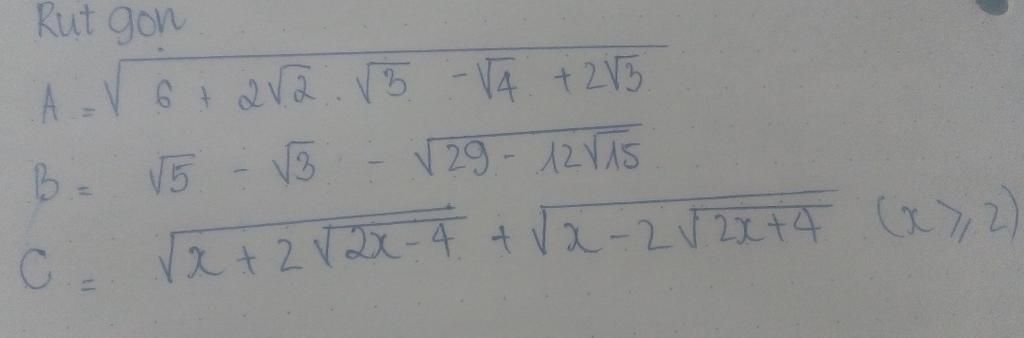 Rut gọn
A = √(6 + 2√2 . √3 - √4 + 2√3)
B = √5 - √3 - √(29 - 12√15)
C = √(x + 2√(2x - 4)) + √(x - 2√(2x + 4)) (x ⩾ 2)